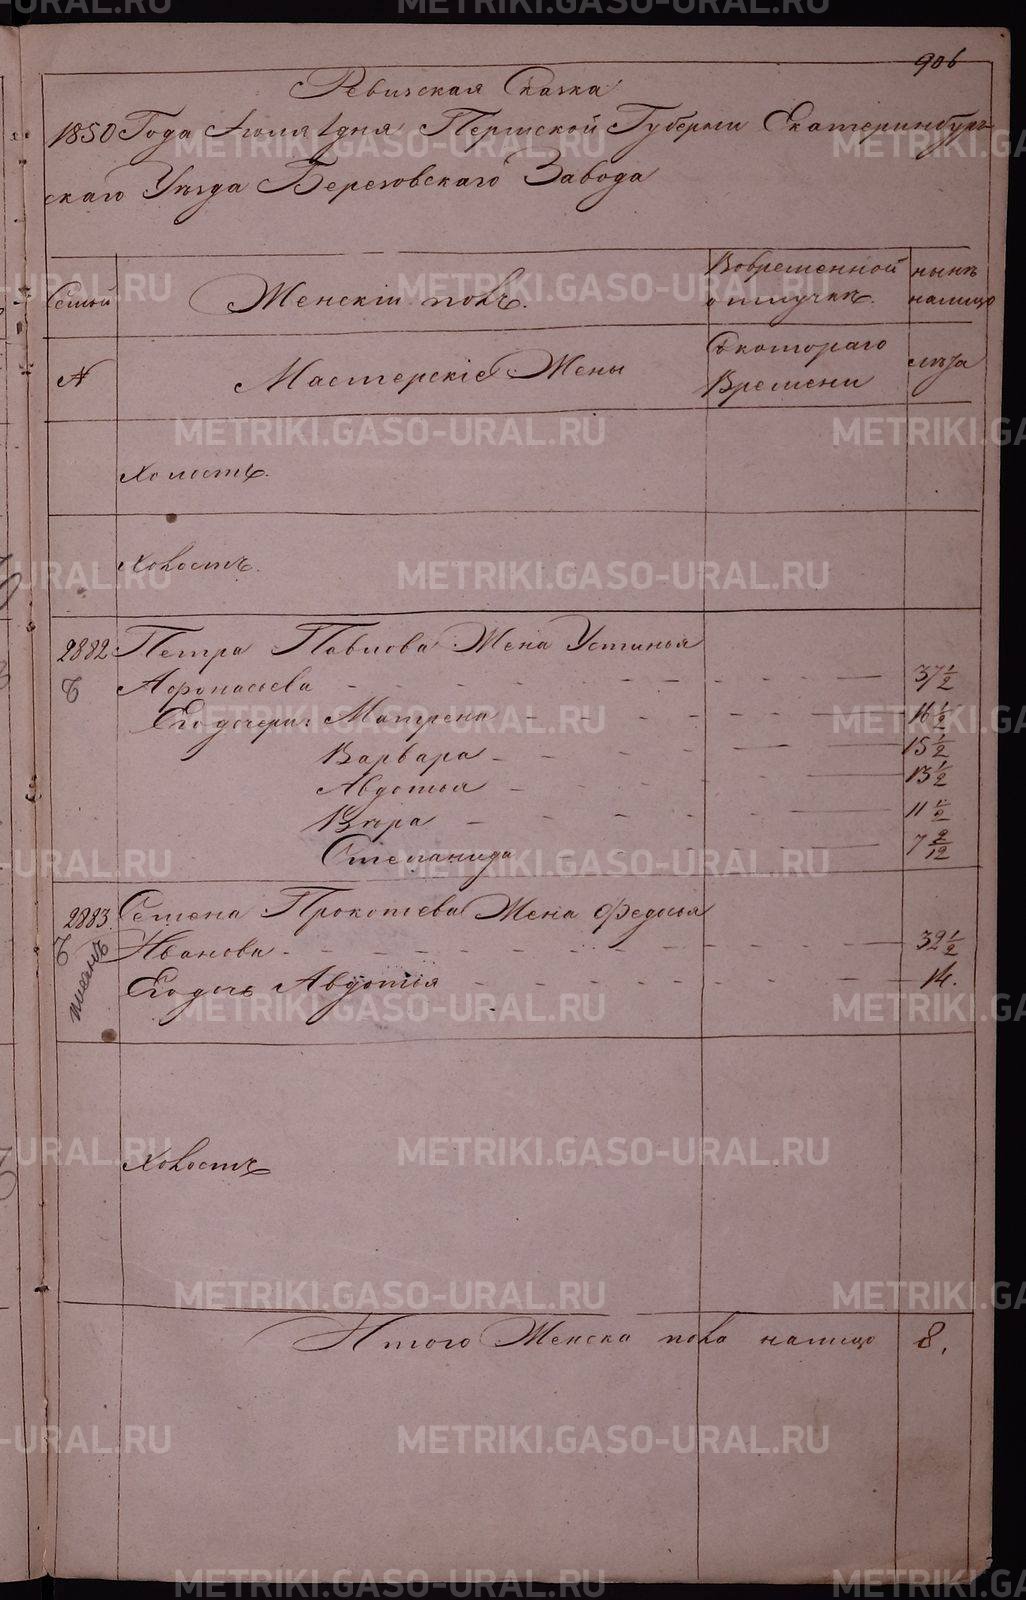 906
Ревизская Сказка
1850 Года Іюля 1 дня Пермской Губернии Екатеринбург-
скаго Уѣзда Березовскаго Завода
Семьи
Женскій полъ.
Вовременной
отлучкѣ.
нынѣ
налицо
№
Мастерскіе Жены
Скотораго
Времени
лѣта
Холостъ.
Холостъ.
2882 Петра Павлова Жена Устинья
Афонасьева 37 1/2
Его дочери: Матрена 16 1/2
Варвара 15 1/2
Авдотья 13 1/2
Вѣра 11 1/2
Степанида 7 2/12
2883. Семена Прокопьева Жена Федосья
Иванова 39 1/2
Его дочь Авдотья 14.
Холостъ
Итого Женска пола налицо 8.
METRIKI.GASO-URAL.RU